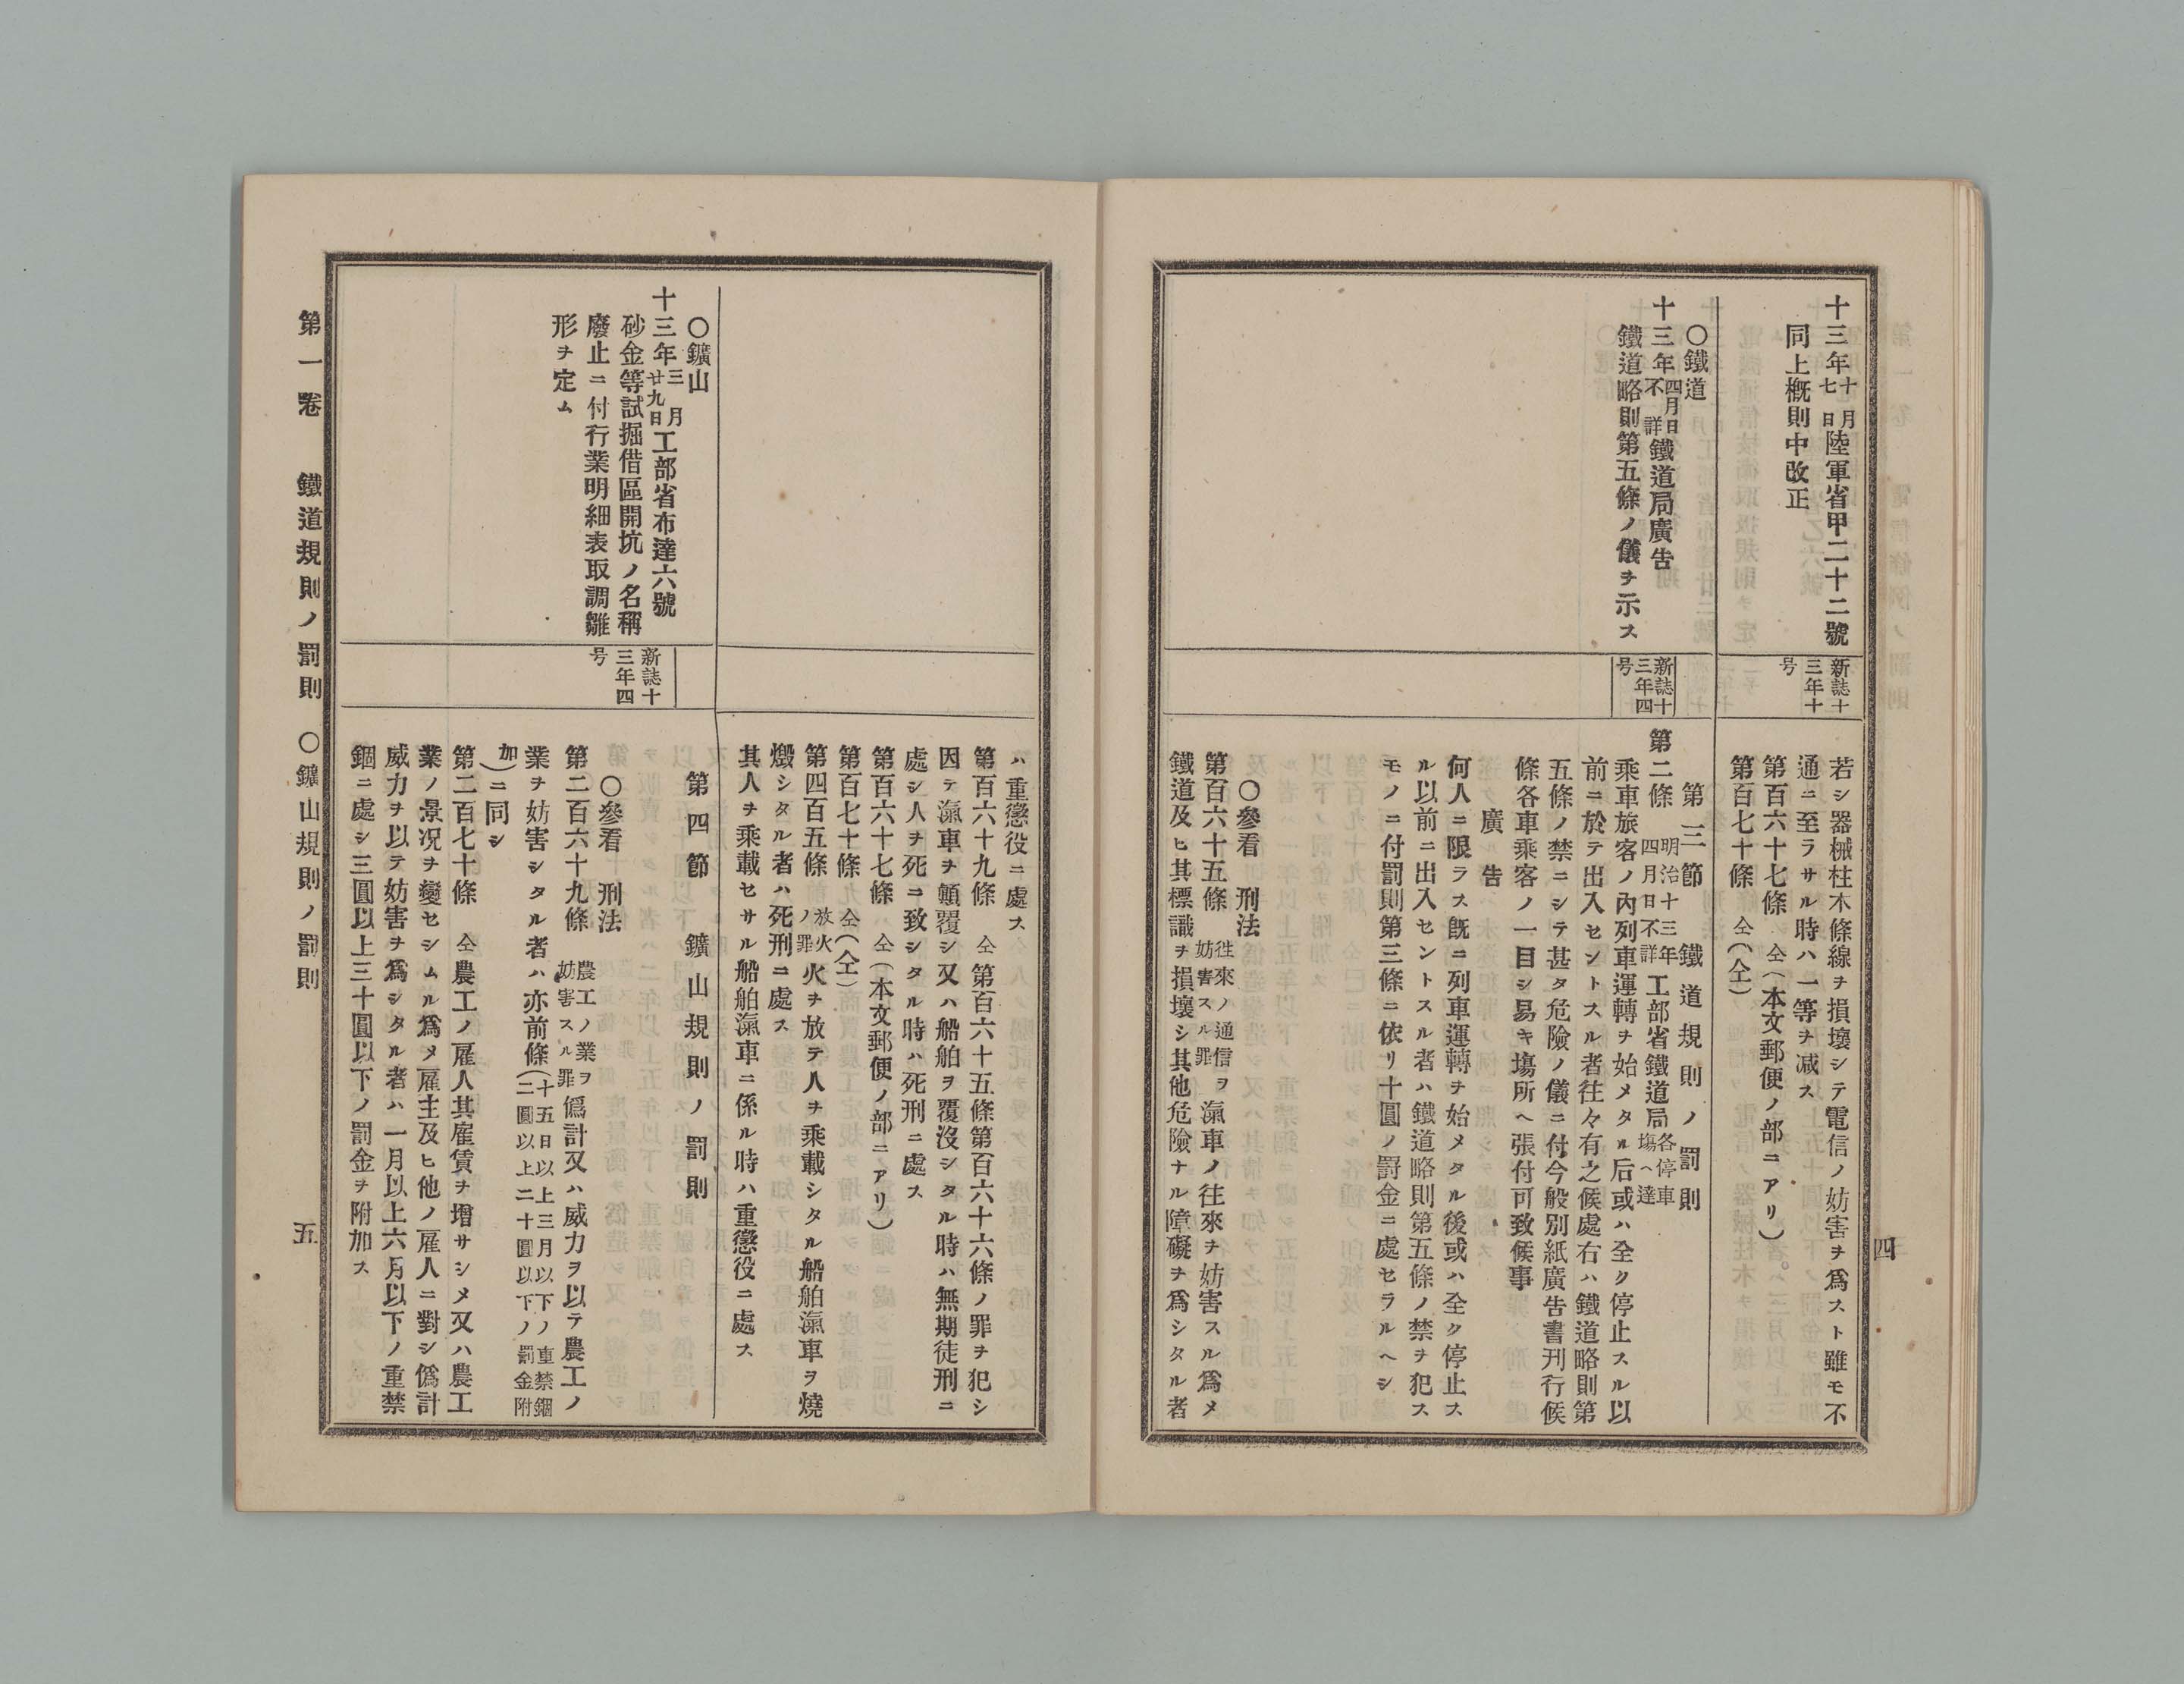 十三年十月七日陸軍省甲二十二號
同上概則中改正
○鐵道
十三年四月日不詳鐵道局廣告
鐵道略則第五條ノ儀ヲ示ス
新誌十
三年十
号
新誌十
三年四
号
若シ器械柱木條線ヲ損壞シテ電信ノ妨害ヲ爲スト雖モ不
通ニ至ラサル時ハ一等ヲ减ス
第百六十七條 仝(本文郵便ノ部ニアリ)
第百七十條 仝(仝)
第三節 鐵道規則ノ罰則
第二條 明治十三年四月日不詳工部省鐵道局各停車塲ヘ達
乘車旅客ノ內列車運轉ヲ始メタル后或ハ全ク停止スル以
前ニ於テ出入セントスル者往々有之候處右ハ鐵道略則第
五條ノ禁ニシテ甚タ危險ノ儀ニ付今般別紙廣告書刊行候
條各車乘客ノ一目シ易キ塲所ヘ張付可致候事
廣告
何人ニ限ラス既ニ列車運轉ヲ始メタル後或ハ全ク停止ス
ル以前ニ出入セントスル者ハ鐵道略則第五條ノ禁ヲ犯ス
モノニ付罰則第三條ニ依リ十圓ノ罰金ニ處セラルヘシ
○參看 刑法
第百六十五條 往來ノ通信ヲ妨害スル罪 滊車ノ往來ヲ妨害スル爲メ
鐵道及ヒ其標識ヲ損壞シ其他危險ナル障礙ヲ爲シタル者
四
ハ重懲役ニ處ス
第百六十九條 仝 第百六十五條第百六十六條ノ罪ヲ犯シ
因テ滊車ヲ顚覆シ又ハ船舶ヲ覆沒シタル時ハ無期徒刑ニ
處シ人ヲ死ニ致シタル時ハ死刑ニ處ス
第百六十七條 仝(本文郵便ノ部ニアリ)
第百七十條 仝(仝)
第四百五條 放火ノ罪 火ヲ放テ人ヲ乘載シタル船舶滊車ヲ燒
燬シタル者ハ死刑ニ處ス
其人ヲ乘載セサル船舶滊車ニ係ル時ハ重懲役ニ處ス
○鑛山
十三年三月廿九日工部省布達六號
砂金等試掘借區開坑ノ名稱
廢止ニ付行業明細表取調雛
形ヲ定ム
新誌十
三年四
号
第四節 鑛山規則ノ罰則
○參看 刑法
第二百六十九條 農工ノ業ヲ妨害スル罪 僞計又ハ威力ヲ以テ農工ノ
業ヲ妨害シタル者ハ亦前條(十五日以上三月以下ノ重禁錮二圓以上二十圓以下ノ罰金附
加)ニ同シ
第二百七十條 仝 農工ノ雇人其雇賃ヲ增サシメ又ハ農工
業ノ景况ヲ變セシムル爲メ雇主及ヒ他ノ雇人ニ對シ僞計
威力ヲ以テ妨害ヲ爲シタル者ハ一月以上六月以下ノ重禁
錮ニ處シ三圓以上三十圓以下ノ罰金ヲ附加ス
第一卷 鐵道規則ノ罰則 ○鑛山規則ノ罰則 五